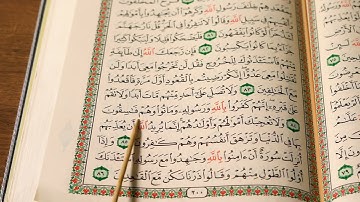 فِى سَبِيلِ ٱللَّهِ وَقَالُوا۟ لَا تَنفِرُوا۟ فِى
لَّوْ كَانُوا۟ يَفْقَهُونَ ٨١ فَلْيَضْحَكُوا۟ قَلِيلًا وَلْيَبْكُوا۟ كَثِيرًا
جَزَآءًۢ بِمَا كَانُوا۟ يَكْسِبُونَ ٨٢ فَإِن رَّجَعَكَ ٱللَّهُ إِلَىٰ طَآئِفَةٍ
مِّنْهُمْ فَٱسْتَـْٔذَنُوكَ لِلْخُرُوجِ فَقُل لَّن تَخْرُجُوا۟ مَعِىَ أَبَدًا وَلَن
تُقَـٰتِلُوا۟ مَعِىَ عَدُوًّا إِنَّكُمْ رَضِيتُم بِٱلْقُعُودِ أَوَّلَ مَرَّةٍ فَٱقْعُدُوا۟
مَعَ ٱلْخَـٰلِفِينَ ٨٣ وَلَا تُصَلِّ عَلَىٰٓ أَحَدٍ مِّنْهُم مَّاتَ أَبَدًا وَلَا تَقُمْ
عَلَىٰ قَبْرِهِۦٓ إِنَّهُمْ كَفَرُوا۟ بِٱللَّهِ وَرَسُولِهِۦ وَمَاتُوا۟ وَهُمْ فَـٰسِقُونَ
٨٤ وَلَا تُعْجِبْكَ أَمْوَٰلُهُمْ وَأَوْلَـٰدُهُمْ إِنَّمَا يُرِيدُ ٱللَّهُ أَن يُعَذِّبَهُم
بِهَا فِى ٱلدُّنْيَا وَتَزْهَقَ أَنفُسُهُمْ وَهُمْ كَـٰفِرُونَ ٨٥ وَإِذَآ
أُنزِلَتْ سُورَةٌ أَنْ ءَامِنُوا۟ بِٱللَّهِ وَجَـٰهِدُوا۟ مَعَ رَسُولِهِ ٱسْتَـْٔذَنَكَ
أُو۟لُوا۟ ٱلطَّوْلِ مِنْهُمْ وَقَالُوا۟ ذَرْنَا نَكُن مَّعَ ٱلْقَـٰعِدِينَ ٨٦
٢٠٠